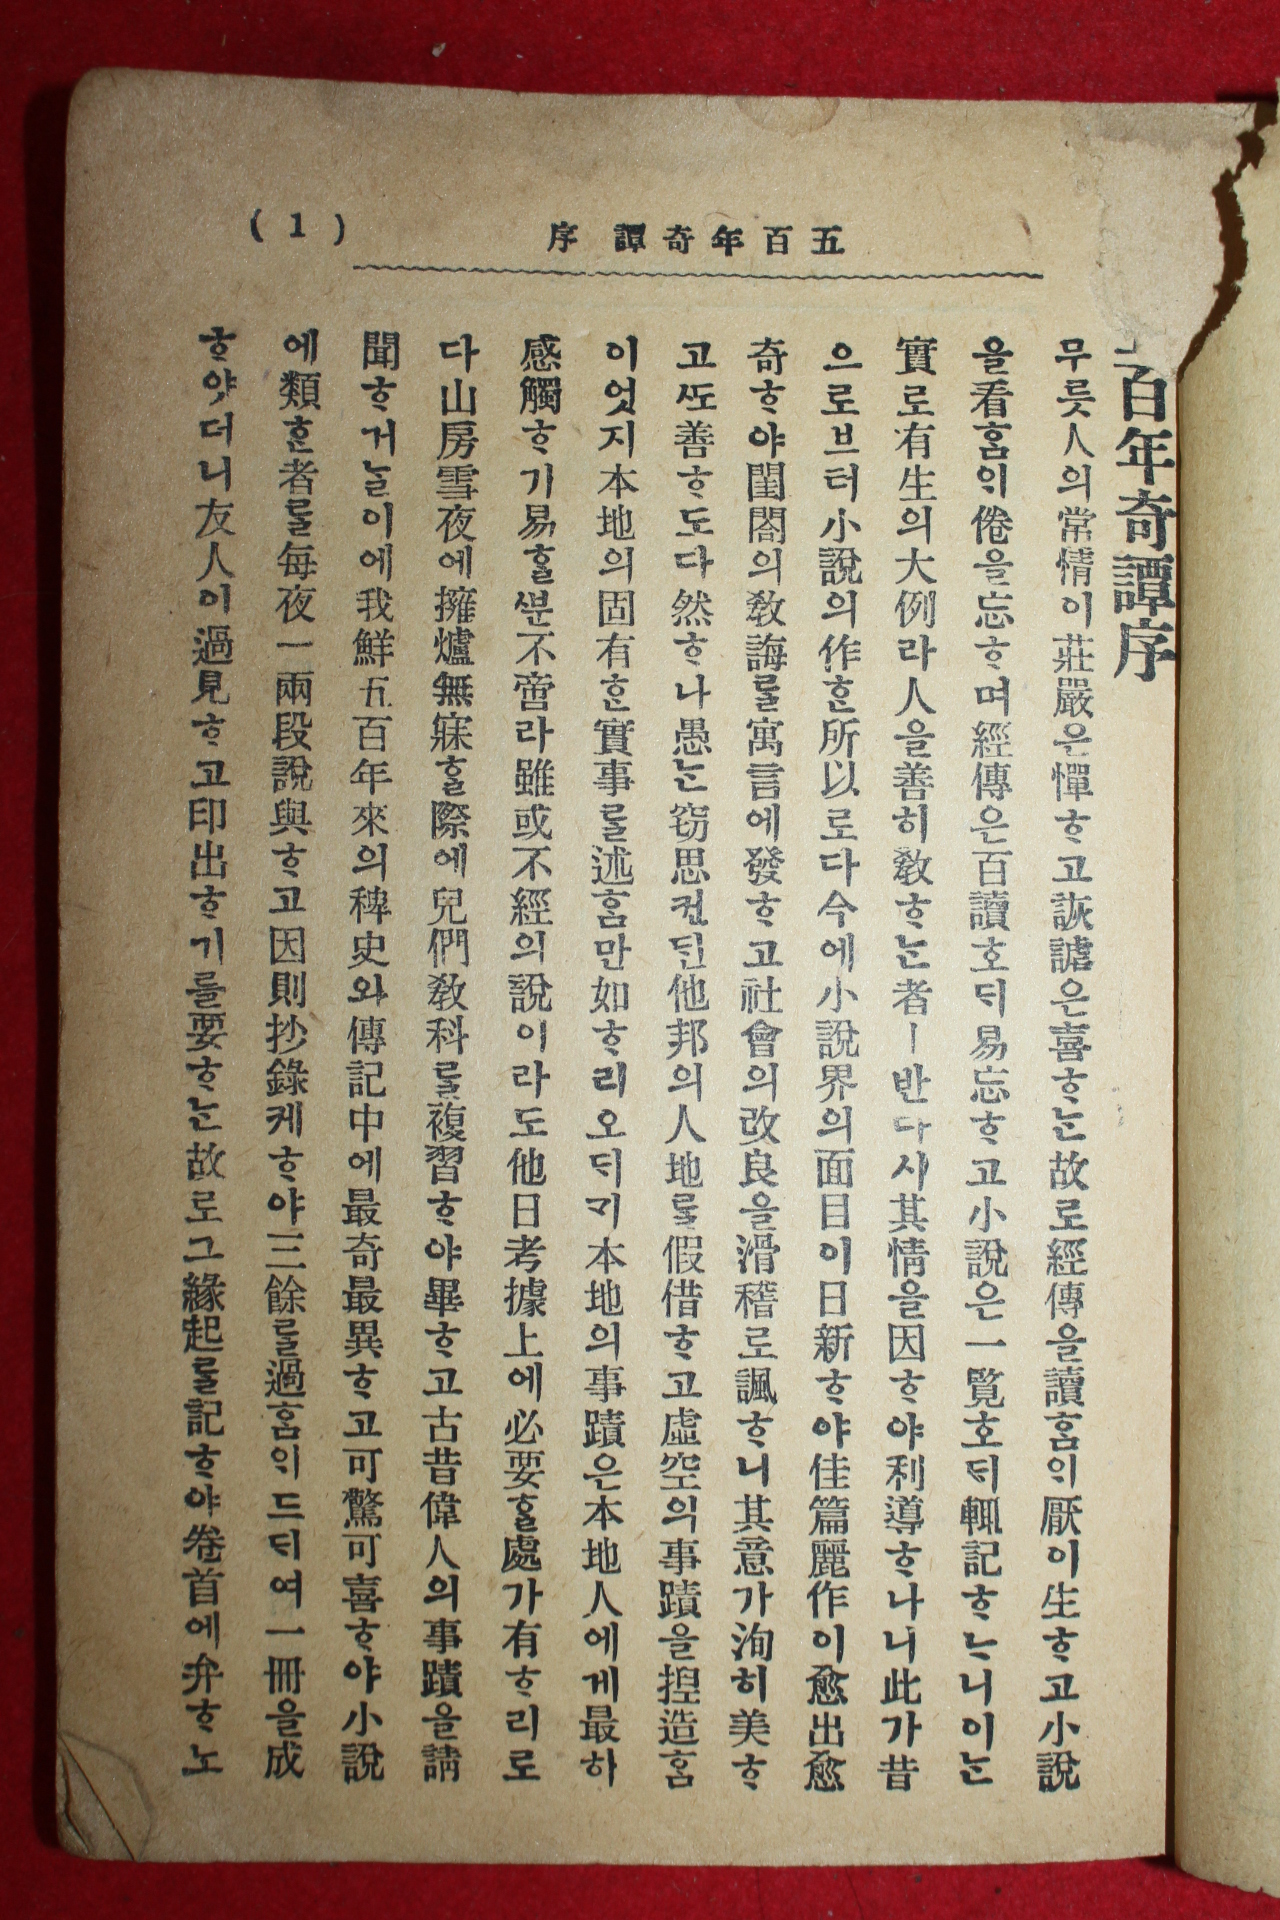 五百年奇譚 序
( 1 )
百年奇譚序
무릇人의常情이莊嚴은憚ᄒᆞ고詼謔은喜ᄒᆞᄂᆞᆫ故로經傳을讀ᄒᆞᆷᄋᆡ厭이生ᄒᆞ고小說
을看ᄒᆞᆷᄋᆡ倦을忘ᄒᆞ며經傳은百讀호ᄃᆡ易忘ᄒᆞ고小說은一覧호ᄃᆡ輒記ᄒᆞᄂᆞ니이ᄂᆞᆫ
實로有生의大例라人을善히敎ᄒᆞᄂᆞᆫ者ㅣ반다시其情을因ᄒᆞ야利導ᄒᆞ나니此가昔
으로브터小說의作ᄒᆞᆫ所以로다今에小說界의面目이日新ᄒᆞ야佳篇麗作이愈出愈
奇ᄒᆞ야閨閤의敎誨ᄅᆞᆯ寓言에發ᄒᆞ고社會의改良을滑稽로諷ᄒᆞ니其意가洵히美ᄒᆞ
고ᄯᅩ善ᄒᆞ도다然ᄒᆞ나愚ᄂᆞᆫ窃思컨ᄃᆡᆫ他邦의人地ᄅᆞᆯ假借ᄒᆞ고虛空의事蹟을揑造ᄒᆞᆷ
이엇지本地의固有ᄒᆞᆫ實事ᄅᆞᆯ述ᄒᆞᆷ만如ᄒᆞ리오ᄃᆡ기本地의事蹟은本地人에게最하
感觸ᄒᆞ기易ᄒᆞᆯᄲᅮᆫ不啻라雖或不經의說이라도他日考據上에必要ᄒᆞᆯ處가有ᄒᆞ리로
다山房雪夜에擁爐無寐ᄒᆞᆯ際에兒們敎科ᄅᆞᆯ複習ᄒᆞ야畢ᄒᆞ고古昔偉人의事蹟을請
聞ᄒᆞ거ᄂᆞᆯ이에我鮮五百年來의稗史와傳記中에最奇最異ᄒᆞ고可驚可喜ᄒᆞ야小說
에類ᄒᆞᆫ者ᄅᆞᆯ每夜一兩段說與ᄒᆞ고因則抄錄케ᄒᆞ야三餘ᄅᆞᆯ過ᄒᆞᆷᄋᆡ드ᄃᆡ여一冊을成
ᄒᆞ얏더니友人이過見ᄒᆞ고印出ᄒᆞ기를要ᄒᆞᄂᆞᆫ故로그緣起ᄅᆞᆯ記ᄒᆞ야卷首에弁ᄒᆞ노